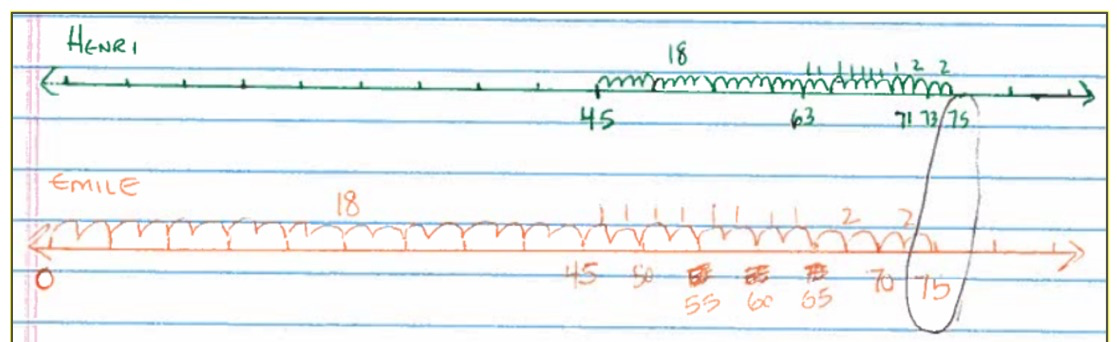 HENRI
18
1 1 1 1 1 1 1 1 2 2
45 63 71 73 75
EMILE
18
1 1 1 1 1 1 1 1 2 2
0 45 50 70 75
55 60 65